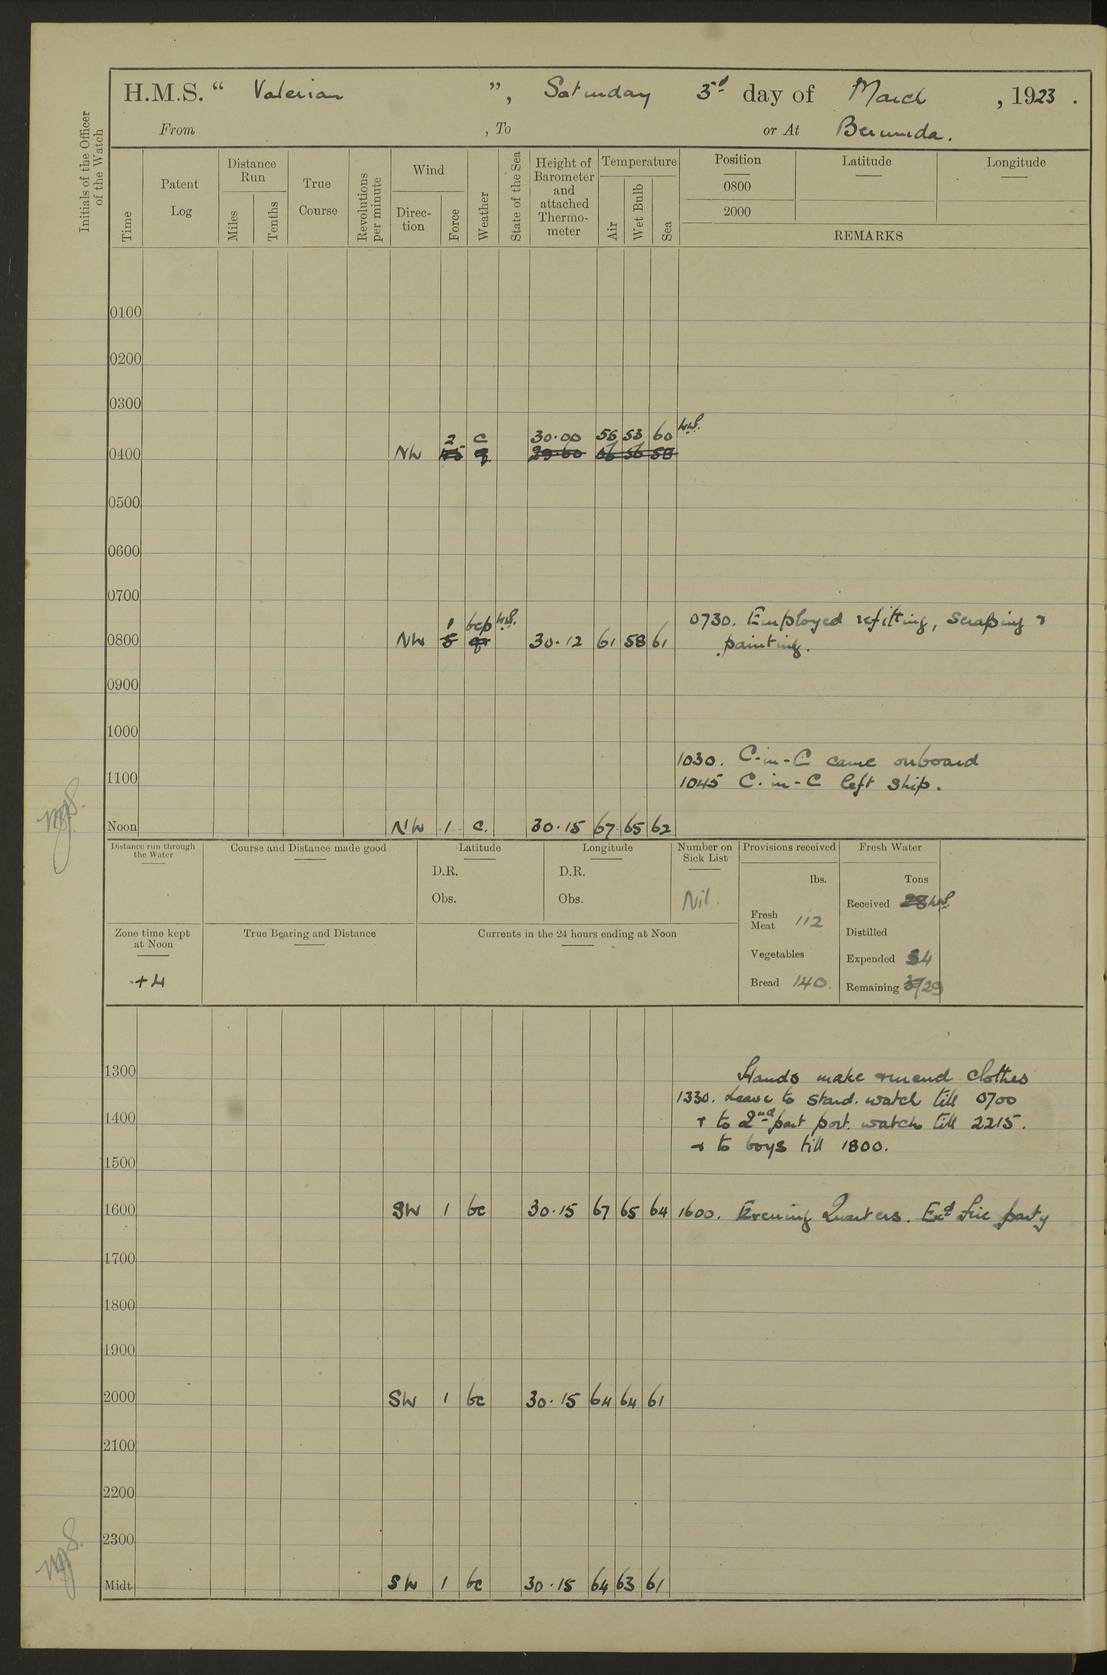 H.M.S. “ Valerian ”, Saturday 3d day of March , 1923 .
From , To or At Bermuda.
Initials of the Officer of the Watch
Time
Patent Log
Distance Run
Miles
Tenths
True Course
Revolutions per minute
Wind
Direction
Force
Weather
State of the Sea
Height of Barometer and attached Thermometer
Temperature
Air
Wet Bulb
Sea
Position Latitude Longitude
0800
2000
REMARKS
0100
0200
0300
2 c 30·00 56 53 60
0400 NW
0500
0600
0700
1 bcp 0730. Employed refitting, scraping &
0800 NW 5 30·12 61 58 61 painting.
0900
1000
1030. C-in-C came onboard
1100 1045 C-in-C left ship.
Noon NW 1 c. 30·15 67 65 62
Distance run through the Water
Course and Distance made good
Latitude
D.R.
Obs.
Longitude
D.R.
Obs.
Number on Sick List
Nil.
Provisions received
lbs.
Fresh Meat 112
Vegetables
Bread 140.
Fresh Water
Tons
Received
Distilled
Expended 4
Remaining 29
Zone time kept at Noon
+4
True Bearing and Distance
Currents in the 24 hours ending at Noon
1300 Hands make & mend clothes
1330. Leave to stard. watch till 0700
1400 & to 2nd part port. watch till 2215.
& to boys till 1800.
1500
1600 SW 1 bc 30·15 67 65 64 1600. Evening Quarters. Exd fire party
1700
1800
1900
2000 SW 1 bc 30·15 64 64 61
2100
2200
2300
Midt SW 1 bc 30·15 64 63 61